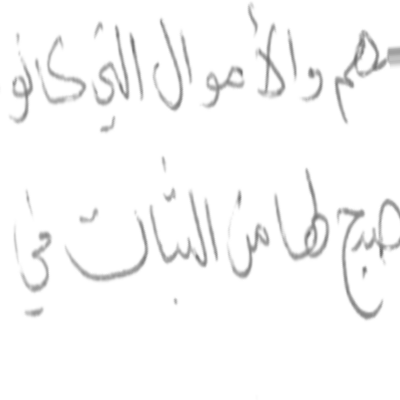 هم والأموال التي كانو
صبح لها من الثبات في